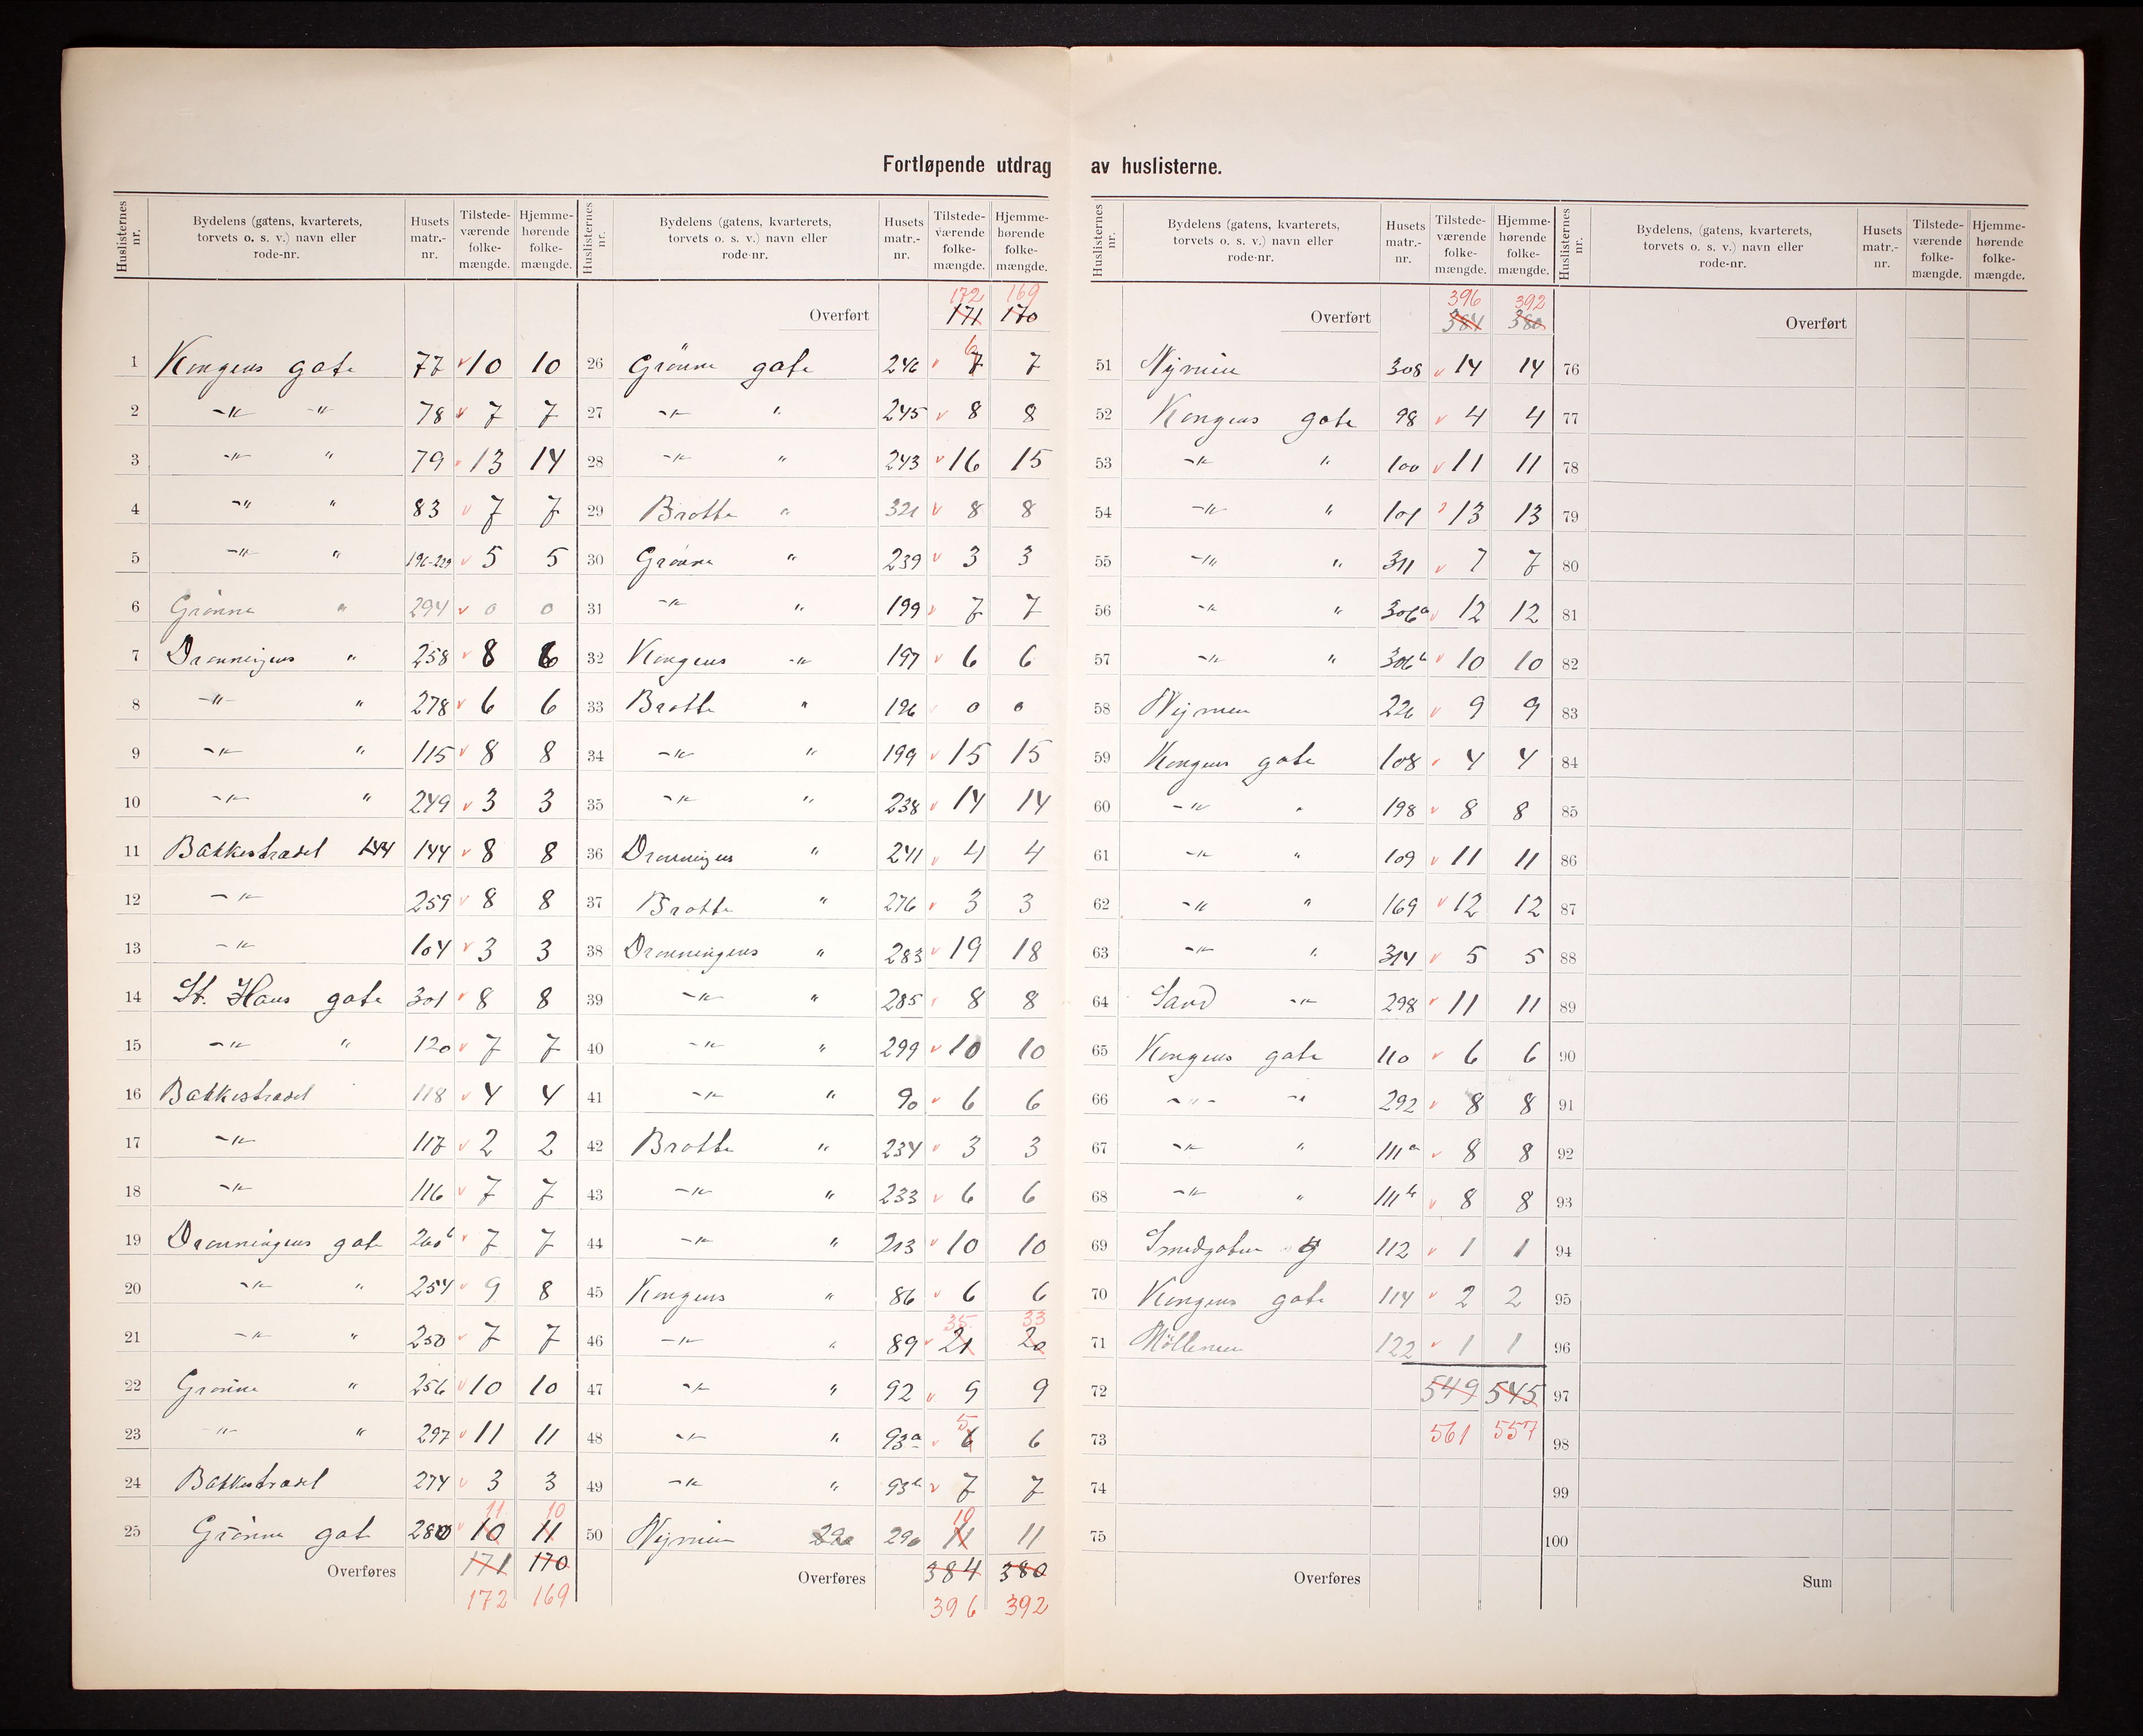 Fortløpende utdrag av huslisterne.
Huslisternes nr. | Bydelens (gatens, kvarterets, torvets o. s. v.) navn eller rode-nr. | Husets matr.-nr. | Tilstede-værende folke-mængde. | Hjemme-hørende folke-mængde.
1 Kongens gate 77 10 10
2 -"- -"- 78 7 7
3 -"- " 79 13 14
4 -"- " 83 7 7
5 -"- " 196-229 5 5
6 Grønne " 294 0 0
7 Dronningens " 258 8 6
8 -"- " 278 6 6
9 -"- " 115 8 8
10 -"- " 249 3 3
11 Bakkestrædet 144 144 8 8
12 -"- 259 8 8
13 -"- 104 3 3
14 St. Hans gate 301 8 8
15 -"- " 120 7 7
16 Bakkestrædet 118 4 4
17 -"- 117 2 2
18 -"- 116 7 7
19 Dronningens gate 260b 7 7
20 -"- " 254 9 8
21 -"- " 250 7 7
22 Grønne " 256 10 10
23 -"- " 297 11 11
24 Bakkestrædet 274 3 3
11 10
25 Grønne gat 280 10 11
Overføres 171 170
172 169
Huslisternes nr. | Bydelens (gatens, kvarterets, torvets o. s. v.) navn eller rode-nr. | Husets matr.-nr. | Tilstede-værende folke-mængde. | Hjemme-hørende folke-mængde.
172 169
Overført 171 170
6
26 Grönne gate 246 7 7
27 -"- " 245 8 8
28 -"- " 243 16 15
29 Bratte " 321 8 8
30 Grønne " 239 3 3
31 -"- " 199 7 7
32 Kongens -"- 197 6 6
33 Bratte " 196 0 0
34 -"- " 199 15 15
35 -"- " 238 14 14
36 Dronningens " 241 4 4
37 Bratte " 276 3 3
38 Dronningens " 283 19 18
39 -"- " 285 8 8
40 -"- " 299 10 10
41 -"- " 90 6 6
42 Bratte " 234 3 3
43 -"- " 233 6 6
44 -"- " 213 10 10
45 Kongens " 86 6 6
35. 33
46 -"- " 89 21 20
47 -"- " 92 9 9
5
48 -"- " 93a 6 6
49 -"- " 93b 7 7
10
50 Nymien 290 290 11 11
Overføres 384 380
396 392
Huslisternes nr. | Bydelens (gatens, kvarterets, torvets o. s. v.) navn eller rode-nr. | Husets matr.-nr. | Tilstede-værende folke-mængde. | Hjemme-hørende folke-mængde.
396 392
Overført 384 380
51 Nymien 308 14 14
52 Kongens gate 98 4 4
53 -"- " 100 11 11
54 -"- " 101 13 13
55 -"- " 311 7 7
56 -"- " 306a 12 12
57 -"- " 306b 10 10
58 Nymien 226 9 9
59 Kongens gate 108 4 4
60 -"- " 198 8 8
61 -"- " 109 11 11
62 -"- " 169 12 12
63 -"- " 314 5 5
64 Sand -"- 298 11 11
65 Kongens gate 110 6 6
66 -"- -"- 292 8 8
67 -"- " 111a 8 8
68 -"- " 111b 8 8
69 Smedgaten 112 1 1
70 Kongens gate 114 2 2
71 Möllenen 122 1 1
72 549 545
73 561 557
74
75
Overføres
Huslisternes nr. | Bydelens, (gatens, kvarterets, torvets o. s. v.) navn eller rode-nr. | Husets matr.-nr. | Tilstede-værende folke-mængde. | Hjemme-hørende folke-mængde.
Overført
76
77
78
79
80
81
82
83
84
85
86
87
88
89
90
91
92
93
94
95
96
97
98
99
100
Sum